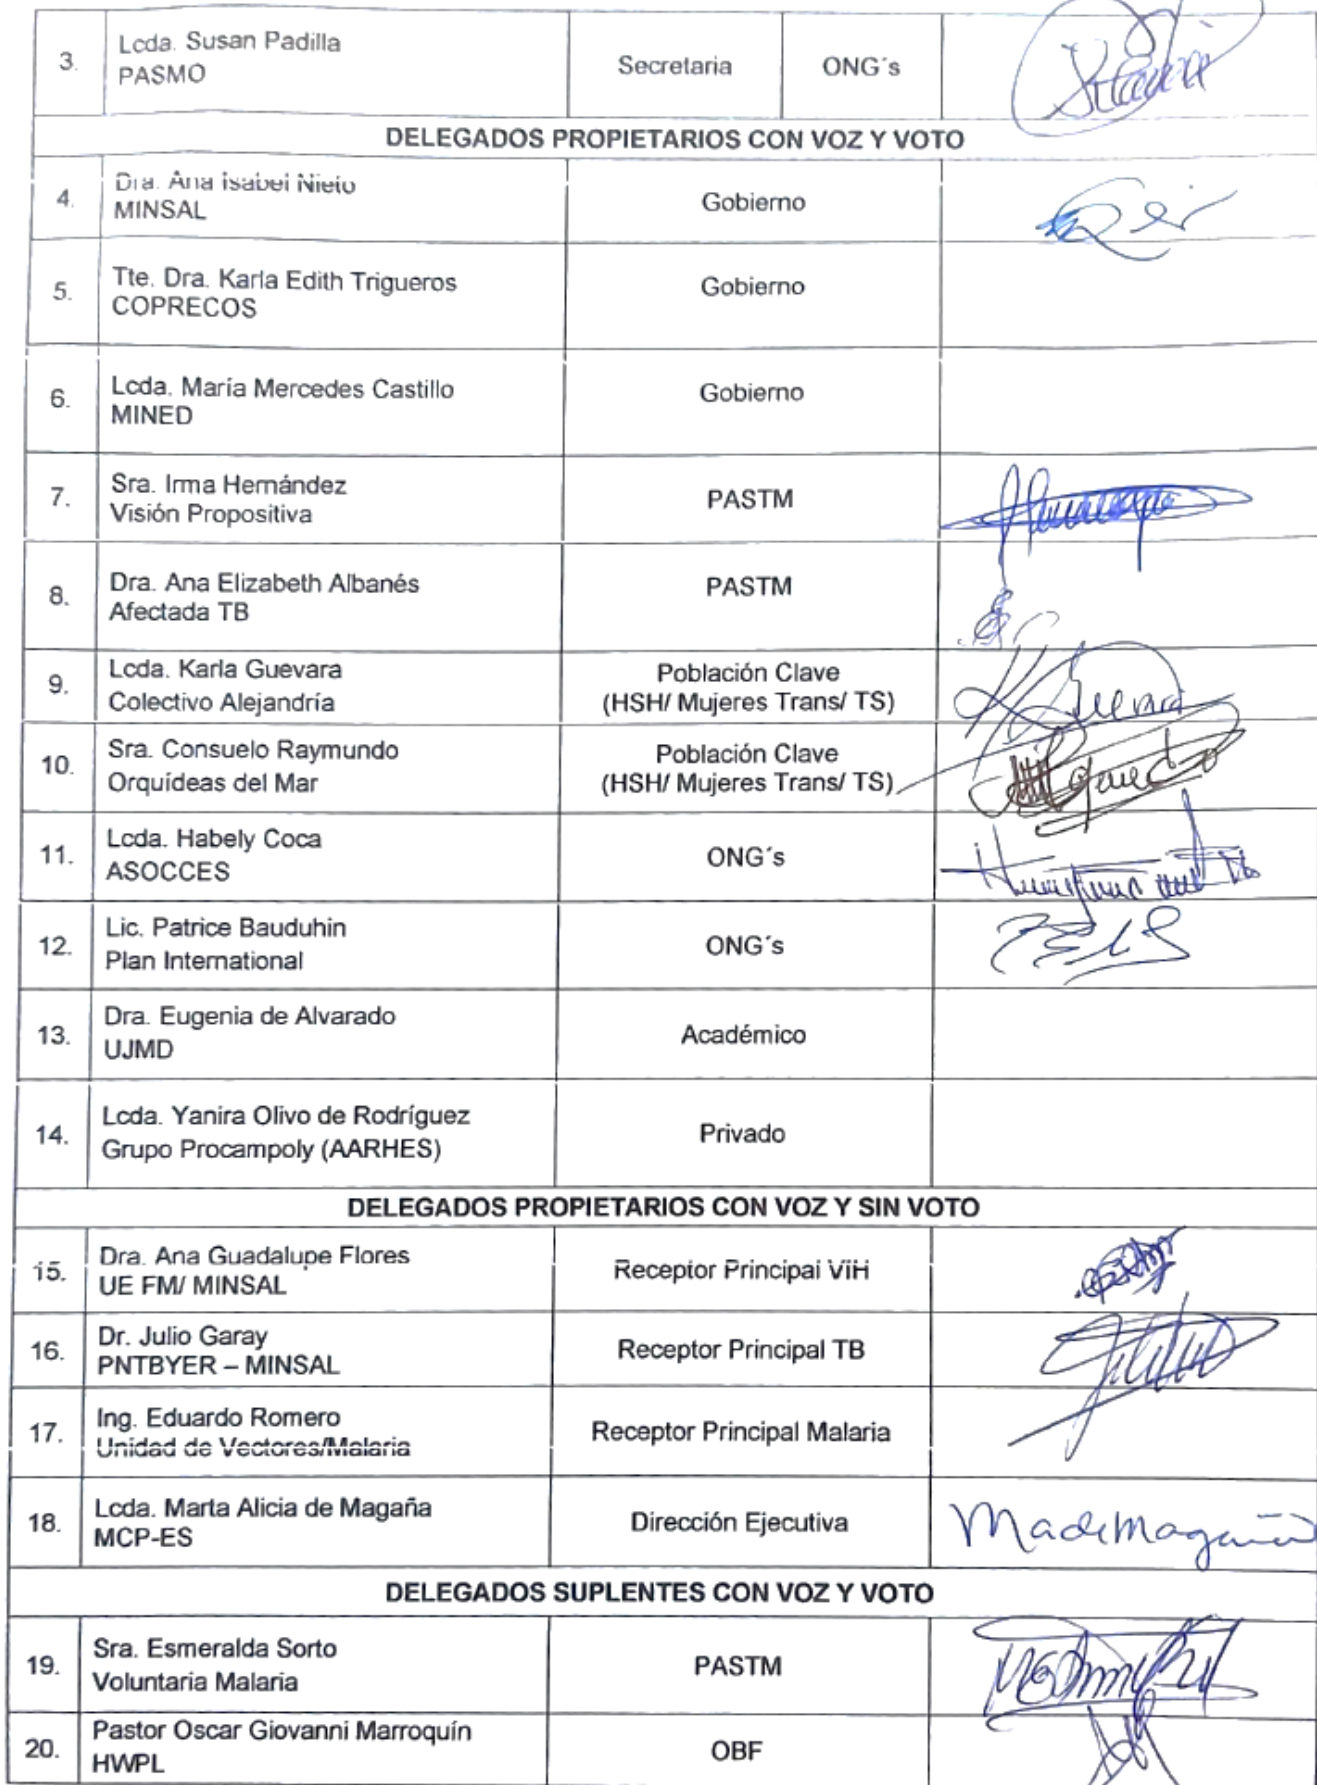 3. Lcda. Susan Padilla
PASMO
Secretaria
ONG´s
DELEGADOS PROPIETARIOS CON VOZ Y VOTO
4. Dra. Ana Isabel Nieto
MINSAL
Gobierno
5. Tte. Dra. Karla Edith Trigueros
COPRECOS
Gobierno
6. Lcda. María Mercedes Castillo
MINED
Gobierno
7. Sra. Irma Hernández
Visión Propositiva
PASTM
8. Dra. Ana Elizabeth Albanés
Afectada TB
PASTM
9. Lcda. Karla Guevara
Colectivo Alejandría
Población Clave
(HSH/ Mujeres Trans/ TS)
10. Sra. Consuelo Raymundo
Orquídeas del Mar
Población Clave
(HSH/ Mujeres Trans/ TS)
11. Lcda. Habely Coca
ASOCCES
ONG´s
12. Lic. Patrice Bauduhin
Plan International
ONG´s
13. Dra. Eugenia de Alvarado
UJMD
Académico
14. Lcda. Yanira Olivo de Rodríguez
Grupo Procampoly (AARHES)
Privado
DELEGADOS PROPIETARIOS CON VOZ Y SIN VOTO
15. Dra. Ana Guadalupe Flores
UE FM/ MINSAL
Receptor Principal VIH
16. Dr. Julio Garay
PNTBYER – MINSAL
Receptor Principal TB
17. Ing. Eduardo Romero
Unidad de Vectores/Malaria
Receptor Principal Malaria
18. Lcda. Marta Alicia de Magaña
MCP-ES
Dirección Ejecutiva
MadeMagaña
DELEGADOS SUPLENTES CON VOZ Y VOTO
19. Sra. Esmeralda Sorto
Voluntaria Malaria
PASTM
20. Pastor Oscar Giovanni Marroquín
HWPL
OBF